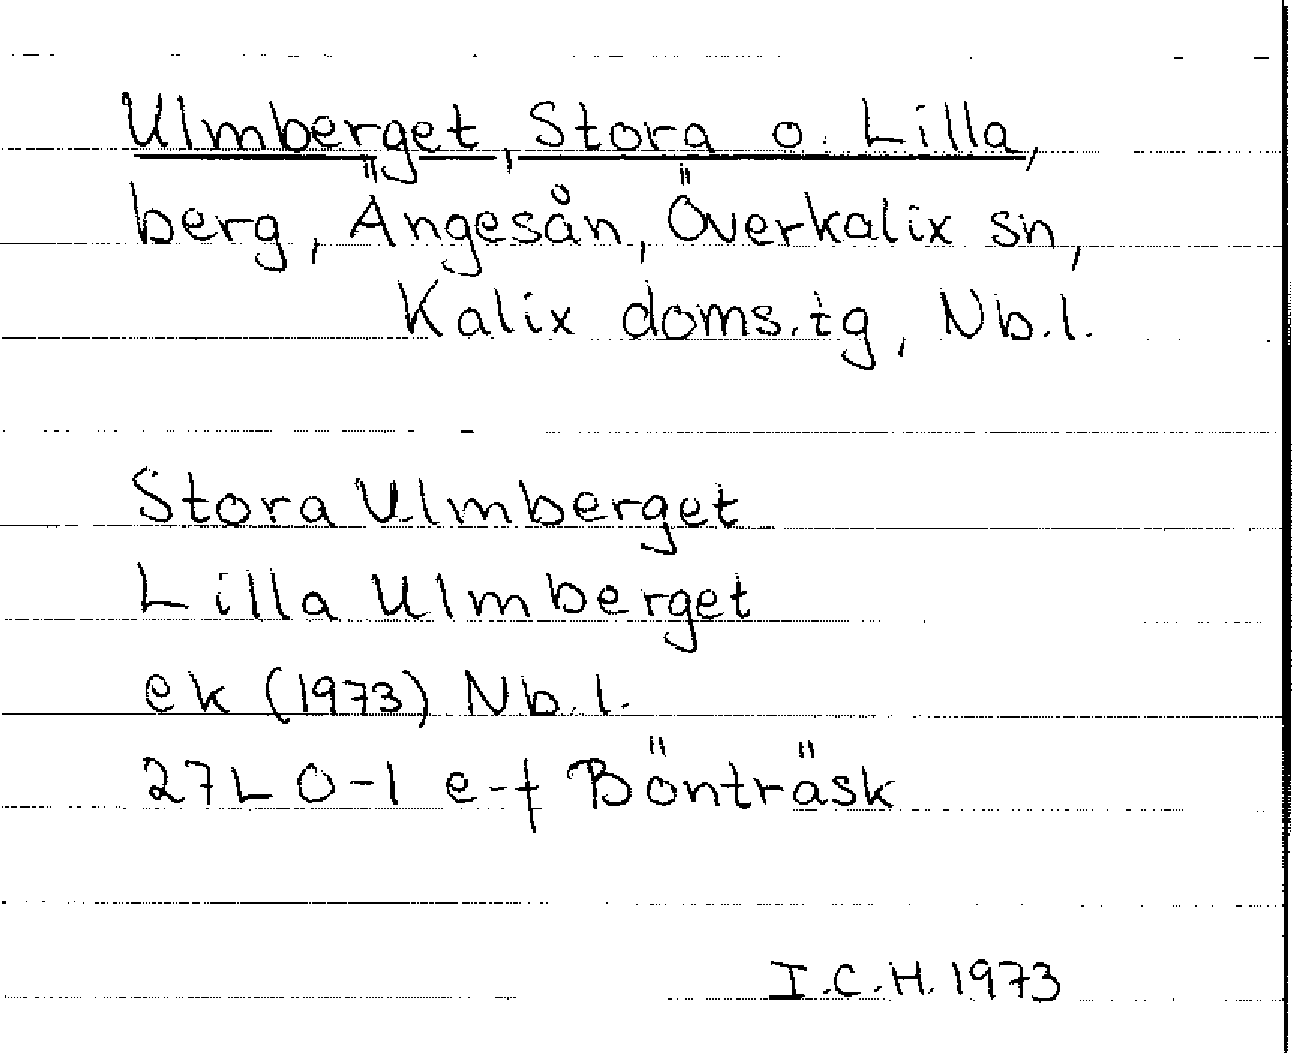 Ulmberget, Stora o. Lilla,
berg, Ängesån, Överkalix sn,
Kalix doms.tg, Nb.l.
Stora Ulmberget
Lilla Ulmberget
ek (1973) Nb.l.
27L 0-1 e-f Bönträsk
I.C.H. 1973